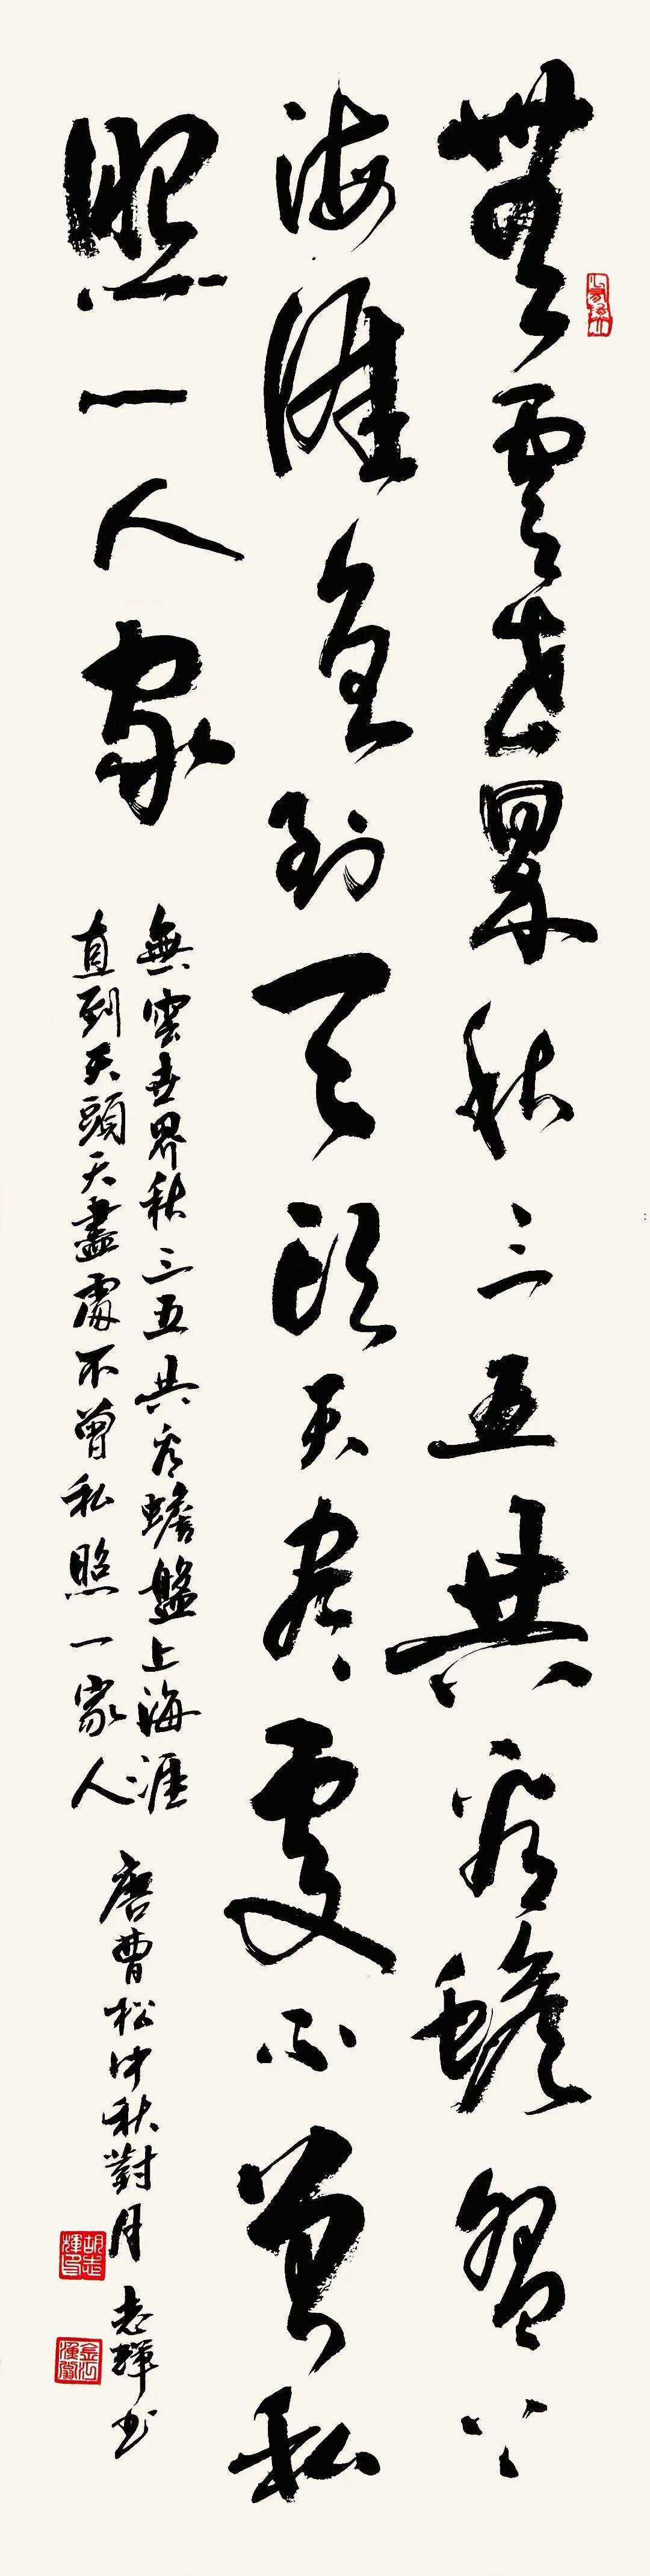 無雲世界秋三五共看蟾盤上
海涯直到天頭天盡處不曾私
照一人家
無雲世界秋三五共看蟾盤上海涯
直到天頭天盡處不曾私照一家人
唐曹松中秋對月 志輝书
胡志輝印